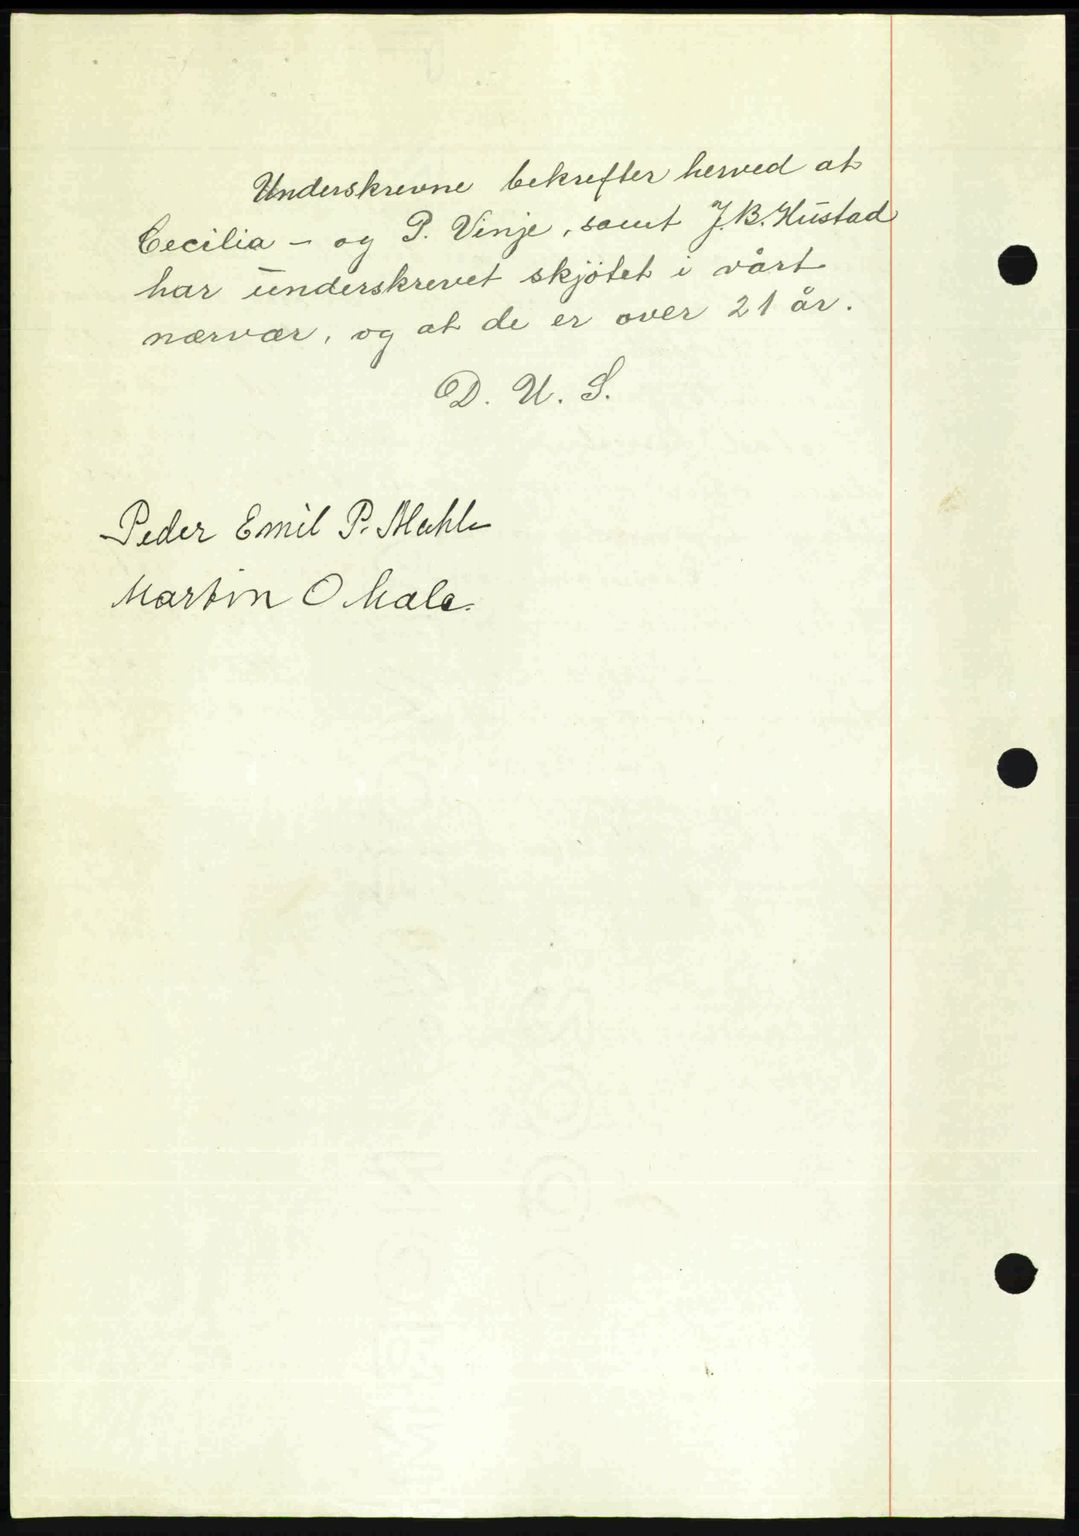 Underskrevne bekrefter herved at
Cecilia - og P. Vinje, samt J.B. Hustad
har underskrevet skjötet i vårt
nærvær, og at de er over 21 år.
D. U. S.
Peder Emil P.
Martin O Male.